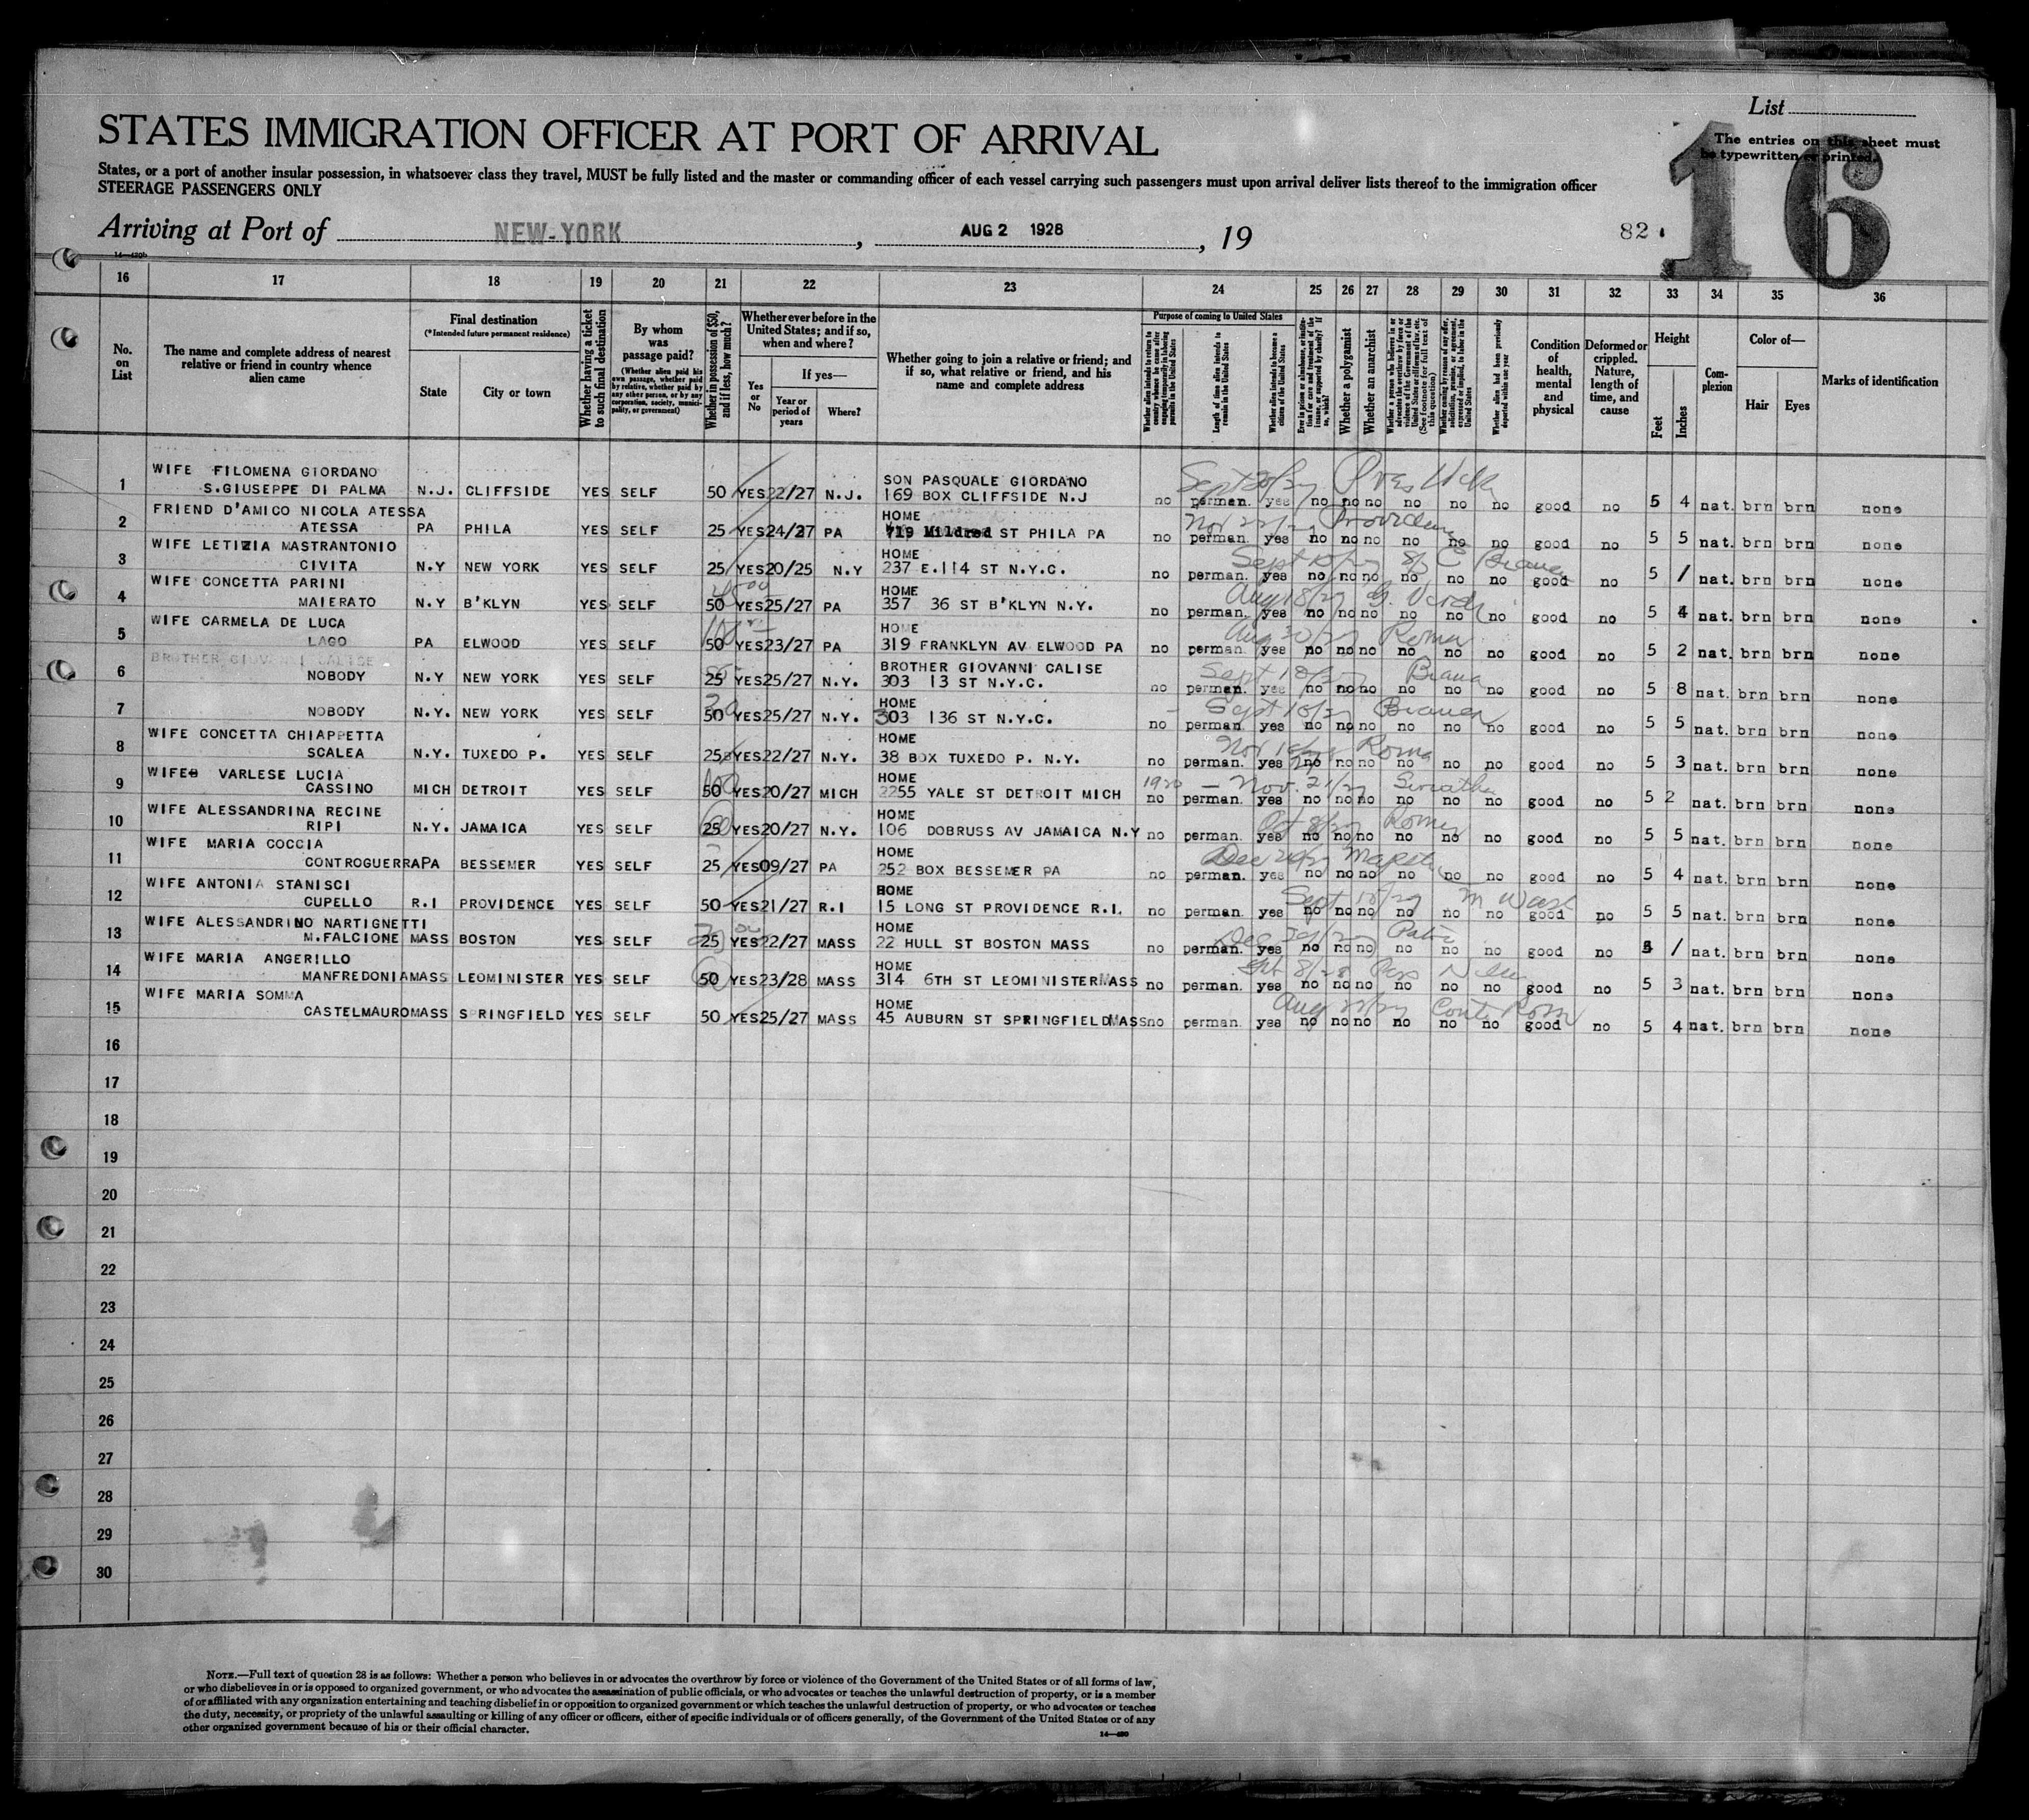 List
STATES IMMIGRATION OFFICER AT PORT OF ARRIVAL
The entries on this sheet must
be typewritten or printed.
16
States, or a port of another insular possession, in whatsoever class they travel, MUST be fully listed and the master or commanding officer of each vessel carrying such passengers must upon arrival deliver lists thereof to the immigration officer
STEERAGE PASSENGERS ONLY
Arriving at Port of NEW-YORK, AUG 2 1928, 19
82
14—420b
16 17 18 19 20 21 22 23 24 25 26 27 28 29 30 31 32 33 34 35 36
No. on List
The name and complete address of nearest relative or friend in country whence alien came
Final destination
(*Intended future permanent residence)
State
City or town
Whether having a ticket to such final destination
By whom was passage paid?
(Whether alien paid his own passage, whether paid by relative, whether paid by any other person, or by any corporation, society, municipality, or government)
Whether in possession of $50, and if less, how much?
Whether ever before in the United States; and if so, when and where?
Yes or No
If yes—
Year or period of years
Where?
Whether going to join a relative or friend; and if so, what relative or friend, and his name and complete address
Purpose of coming to United States
Whether alien intends to return to country whence he came after engaging temporarily in laboring pursuits in the United States
Length of time alien intends to remain in the United States
Whether alien intends to become a citizen of the United States
Ever in prison or almshouse, or institution for care and treatment of the insane, or supported by charity? If so, which?
Whether a polygamist
Whether an anarchist
Whether a person who believes in or advocates the overthrow by force or violence of the Government of the United States or all forms of law, etc. (See footnote for full text of this question)
Whether coming by reason of any offer, solicitation, promise, or agreement, expressed or implied, to labor in the United States
Whether alien had been previously deported within one year
Condition of health, mental and physical
Deformed or crippled. Nature, length of time, and cause
Height
Feet
Inches
Complexion
Color of—
Hair
Eyes
Marks of identification
WIFE FILOMENA GIORDANO SON PASQUALE GIORDANO Sept
1 S.GIUSEPPE DI PALMA N.J. CLIFFSIDE YES SELF 50 YES 22/27 N.J. 169 BOX CLIFFSIDE N.J no perman. yes no no no no no no good no 5 4 nat. brn brn none
FRIEND D'AMICO NICOLA ATESSA HOME Nov
2 ATESSA PA PHILA YES SELF 25 YES 24/27 PA 719 Mildred ST PHILA PA no perman. yes no no no no no no good no 5 5 nat. brn brn none
WIFE LETIZIA MASTRANTONIO HOME Sept
3 CIVITA N.Y NEW YORK YES SELF 25 YES 20/25 N.Y 237 E.114 ST N.Y.C. no perman. yes no no no no no no good no 5 / nat. brn brn none
WIFE CONCETTA PARINI HOME Aug
4 MAIERATO N.Y B'KLYN YES SELF 50 YES 25/27 PA 357 36 ST B'KLYN N.Y. no perman. yes no no no no no no good no 5 4 nat. brn brn none
WIFE CARMELA DE LUCA HOME Aug 30/27 Roma
5 LAGO PA ELWOOD YES SELF 50 YES 23/27 PA 319 FRANKLYN AV ELWOOD PA no perman. yes no no no no no no good no 5 2 nat. brn brn none
BROTHER GIOVANNI CALISE BROTHER GIOVANNI CALISE Sept
6 NOBODY N.Y NEW YORK YES SELF 25 YES 25/27 N.Y. 303 13 ST N.Y.C. no perman. yes no no no no no no good no 5 8 nat. brn brn none
HOME Sept
7 NOBODY N.Y. NEW YORK YES SELF 50 YES 25/27 N.Y. 303 136 ST N.Y.C. no perman. yes no no no no no no good no 5 5 nat. brn brn none
WIFE CONCETTA CHIAPPETTA HOME Nov Roma
8 SCALEA N.Y. TUXEDO P. YES SELF 25 YES 22/27 N.Y. 38 BOX TUXEDO P. N.Y. no perman. yes no no no no no no good no 5 3 nat. brn brn none
WIFE VARLESE LUCIA HOME 1920 — Nov. 21/27
9 CASSINO MICH DETROIT YES SELF 50 YES 20/27 MICH 2255 YALE ST DETROIT MICH no perman. yes no no no no no no good no 5 2 nat. brn brn none
WIFE ALESSANDRINA RECINE HOME Oct 8/27
10 RIPI N.Y. JAMAICA YES SELF 25 YES 20/27 N.Y. 106 DOBRUSS AV JAMAICA N.Y no perman. yes no no no no no no good no 5 5 nat. brn brn none
WIFE MARIA COCCIA HOME Dec
11 CONTROGUERRA PA BESSEMER YES SELF 25 YES 09/27 PA 252 BOX BESSEMER PA no perman. yes no no no no no no good no 5 4 nat. brn brn none
WIFE ANTONIA STANISCI HOME Sept
12 CUPELLO R.I PROVIDENCE YES SELF 50 YES 21/27 R.I 15 LONG ST PROVIDENCE R.I. no perman. yes no no no no no no good no 5 5 nat. brn brn none
WIFE ALESSANDRINO NARTIGNETTI HOME Dec
13 M.FALCIONE MASS BOSTON YES SELF 25 YES 22/27 MASS 22 HULL ST BOSTON MASS no perman. yes no no no no no no good no 5 / nat. brn brn none
WIFE MARIA ANGERILLO HOME
14 MANFREDONIA MASS LEOMINISTER YES SELF 50 YES 23/28 MASS 314 6TH ST LEOMINISTER MASS no perman. yes no no no no no no good no 5 3 nat. brn brn none
WIFE MARIA SOMMA HOME Aug
15 CASTELMAURO MASS SPRINGFIELD YES SELF 50 YES 25/27 MASS 45 AUBURN ST SPRINGFIELD MASS no perman. yes no no no no no no good no 5 4 nat. brn brn none
16
17
18
19
20
21
22
23
24
25
26
27
28
29
30
NOTE.—Full text of question 28 is as follows: Whether a person who believes in or advocates the overthrow by force or violence of the Government of the United States or of all forms of law,
or who disbelieves in or is opposed to organized government, or who advocates the assassination of public officials, or who advocates or teaches the unlawful destruction of property, or is a member
of or affiliated with any organization entertaining and teaching disbelief in or opposition to organized government or which teaches the unlawful destruction of property, or who advocates or teaches
the duty, necessity, or propriety of the unlawful assaulting or killing of any officer or officers, either of specific individuals or of officers generally, of the Government of the United States or of any
other organized government because of his or their official character.
14—420